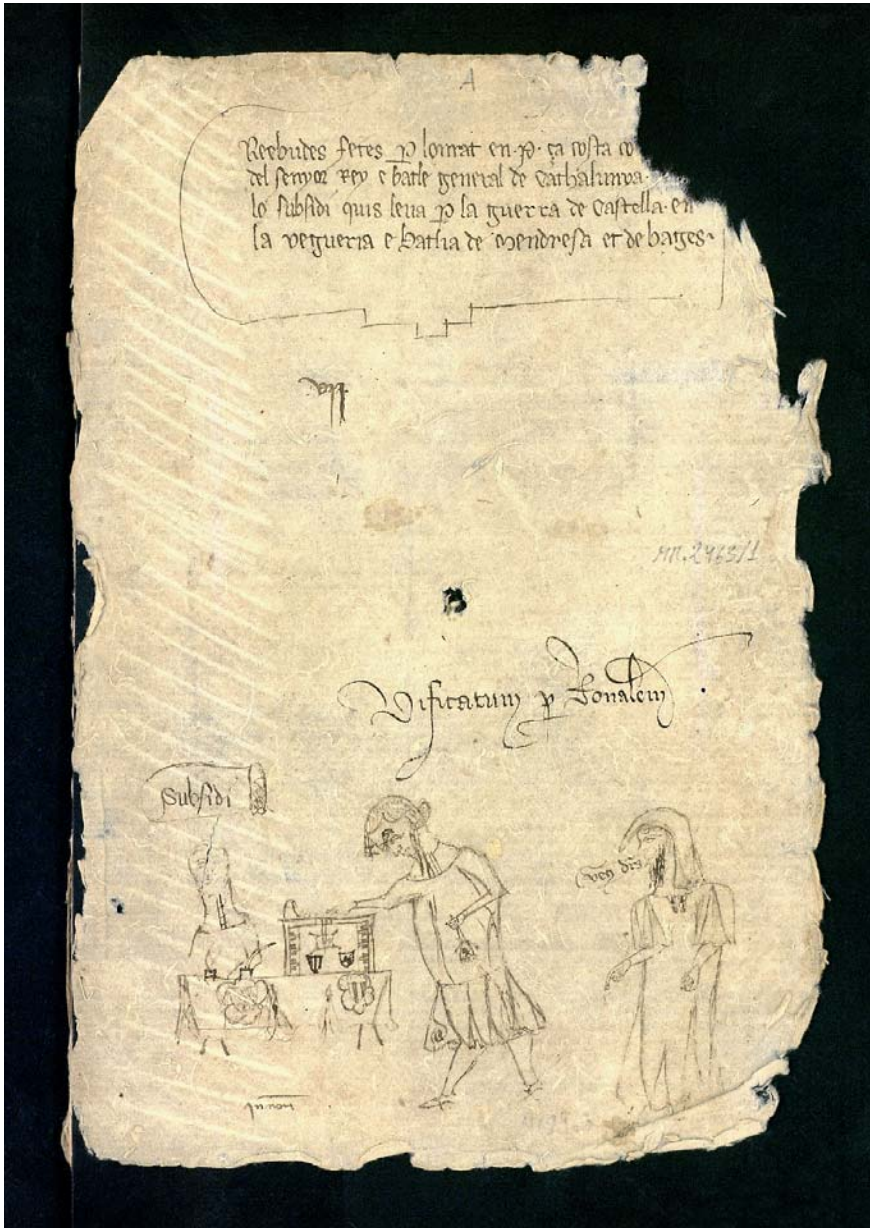 A
Reebudes fetes p lonrat en .p. ça costa co
del senyor Rey e batle general de Cathalunya
lo subsidi quis leua p la guerra de Castella en
la vegueria e batlia de Menresa et de bages.
MR. 2463/1
Vificatum p Bonalem
Subsidi